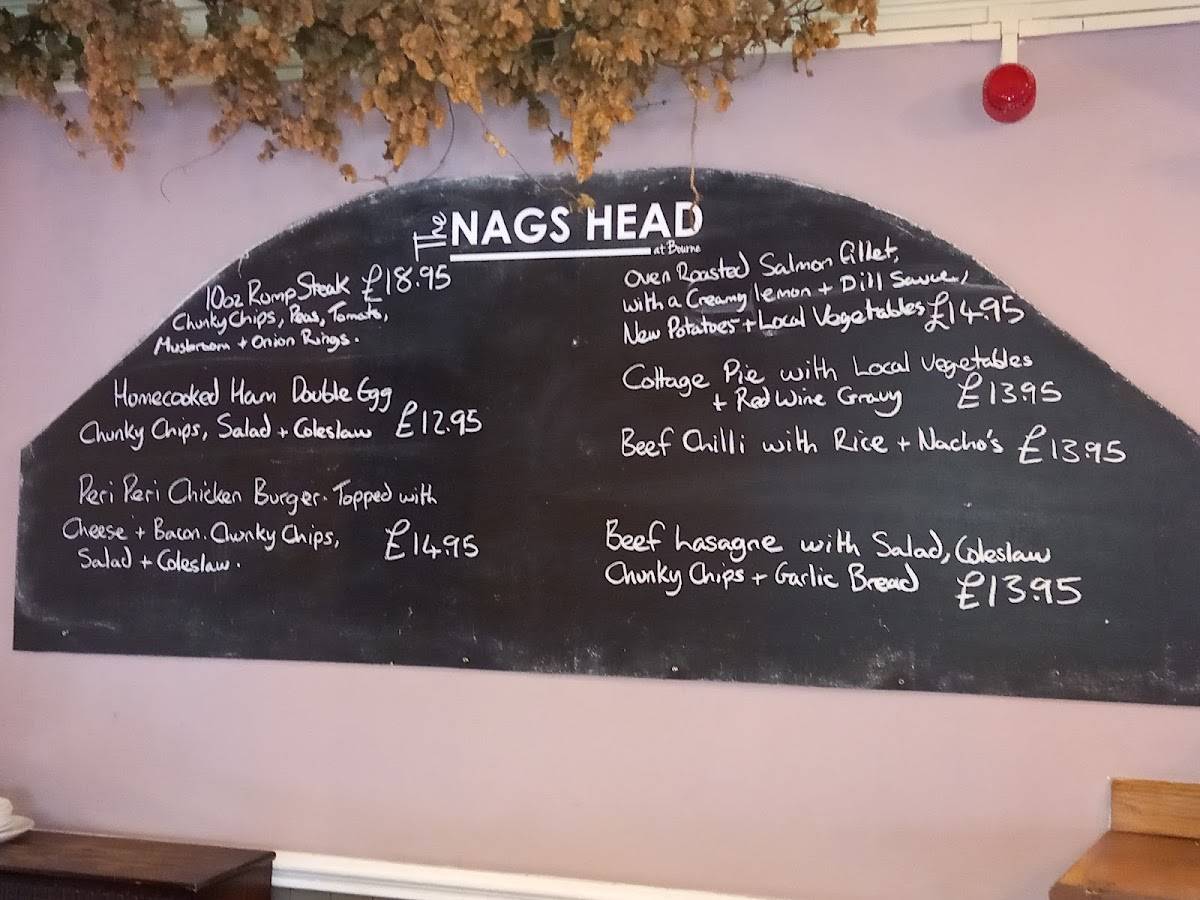 The NAGS HEAD
at Bourne
10oz Rump Steak £18.95
Chunky Chips, Peas, Tomato,
Mushroom + Onion Rings.
Homecooked Ham Double Egg
Chunky Chips, Salad + Coleslaw £12.95
Peri Peri Chicken Burger. Topped with
Cheese + Bacon. Chunky Chips, £14.95
Salad + Coleslaw.
Oven Roasted Salmon Fillet,
with a Creamy lemon + Dill Sauce,
New Potatoes + Local Vegetables £14.95
Cottage Pie with Local Vegetables
+ Red Wine Gravy £13.95
Beef Chilli with Rice + Nacho's £13.95
Beef Lasagne with Salad, Coleslaw
Chunky Chips + Garlic Bread £13.95